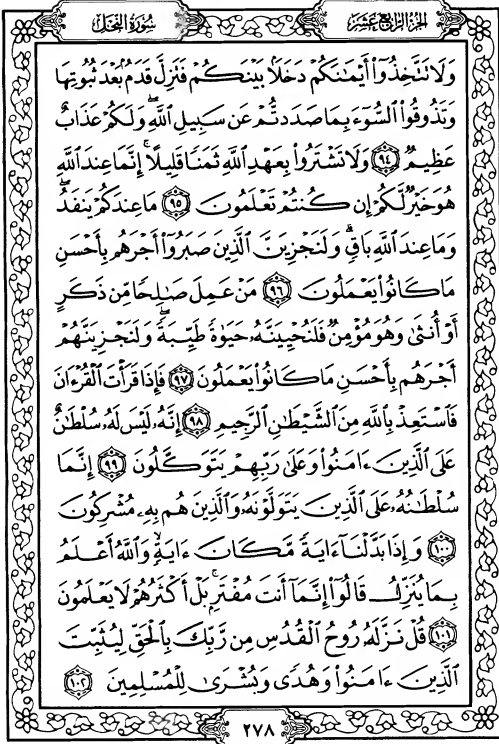 الجزء الرابع عشر
سورة النحل
وَلَا تَتَّخِذُوٓا۟ أَيْمَـٰنَكُمْ دَخَلًۢا بَيْنَكُمْ فَتَزِلَّ قَدَمٌۢ بَعْدَ ثُبُوتِهَا
وَتَذُوقُوا۟ ٱلسُّوٓءَ بِمَا صَدَدتُّمْ عَن سَبِيلِ ٱللَّهِ ۖ وَلَكُمْ عَذَابٌ
عَظِيمٌ ٩٤ وَلَا تَشْتَرُوا۟ بِعَهْدِ ٱللَّهِ ثَمَنًا قَلِيلًا ۚ إِنَّمَا عِندَ ٱللَّهِ
هُوَ خَيْرٌ لَّكُمْ إِن كُنتُمْ تَعْلَمُونَ ٩٥ مَا عِندَكُمْ يَنفَدُ ۖ
وَمَا عِندَ ٱللَّهِ بَاقٍ ۗ وَلَنَجْزِيَنَّ ٱلَّذِينَ صَبَرُوٓا۟ أَجْرَهُم بِأَحْسَنِ
مَا كَانُوا۟ يَعْمَلُونَ ٩٦ مَنْ عَمِلَ صَـٰلِحًا مِّن ذَكَرٍ
أَوْ أُنثَىٰ وَهُوَ مُؤْمِنٌ فَلَنُحْيِيَنَّهُۥ حَيَوٰةً طَيِّبَةً ۖ وَلَنَجْزِيَنَّهُمْ
أَجْرَهُم بِأَحْسَنِ مَا كَانُوا۟ يَعْمَلُونَ ٩٧ فَإِذَا قَرَأْتَ ٱلْقُرْءَانَ
فَٱسْتَعِذْ بِٱللَّهِ مِنَ ٱلشَّيْطَـٰنِ ٱلرَّجِيمِ ٩٨ إِنَّهُۥ لَيْسَ لَهُۥ سُلْطَـٰنٌ
عَلَى ٱلَّذِينَ ءَامَنُوا۟ وَعَلَىٰ رَبِّهِمْ يَتَوَكَّلُونَ ٩٩ إِنَّمَا
سُلْطَـٰنُهُۥ عَلَى ٱلَّذِينَ يَتَوَلَّوْنَهُۥ وَٱلَّذِينَ هُم بِهِۦ مُشْرِكُونَ
١٠٠ وَإِذَا بَدَّلْنَآ ءَايَةً مَّكَانَ ءَايَةٍ ۙ وَٱللَّهُ أَعْلَمُ
بِمَا يُنَزِّلُ قَالُوٓا۟ إِنَّمَآ أَنتَ مُفْتَرٍۭ ۚ بَلْ أَكْثَرُهُمْ لَا يَعْلَمُونَ
١٠١ قُلْ نَزَّلَهُۥ رُوحُ ٱلْقُدُسِ مِن رَّبِّكَ بِٱلْحَقِّ لِيُثَبِّتَ
ٱلَّذِينَ ءَامَنُوا۟ وَهُدًى وَبُشْرَىٰ لِلْمُسْلِمِينَ ١٠٢
٢٧٨